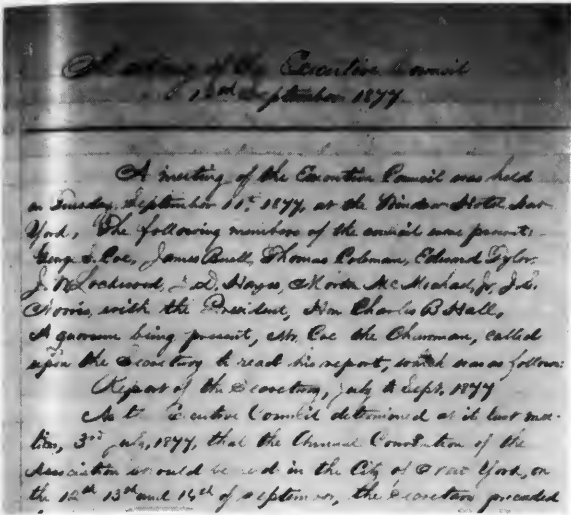 Meeting of the Executive Council
September 1877
A meeting of the Executive Council was held
on Tuesday, September 11th 1877, at the Windsor Hotel New
York, The following members of the council were present:
George S. Coe, James Buell, Thomas Coleman, Edward Tyler
J. W. Lockwood, J. D. Hayes, Morton McMichael, Jr, J. S.
Norris, with the President, Hon Charles B Hall,
A quorum being present, Mr. Coe the Chairman, called
upon the Secretary to read his report, which was as follows:
Report of the Secretary, July to Sept, 1877
As the Executive Council determined at it last mee-
ting, 3rd July, 1877, that the Annual Convention of the
Association should be held in the City of New York, on
the 12th 13th and 14th of September, the Secretary proceeded